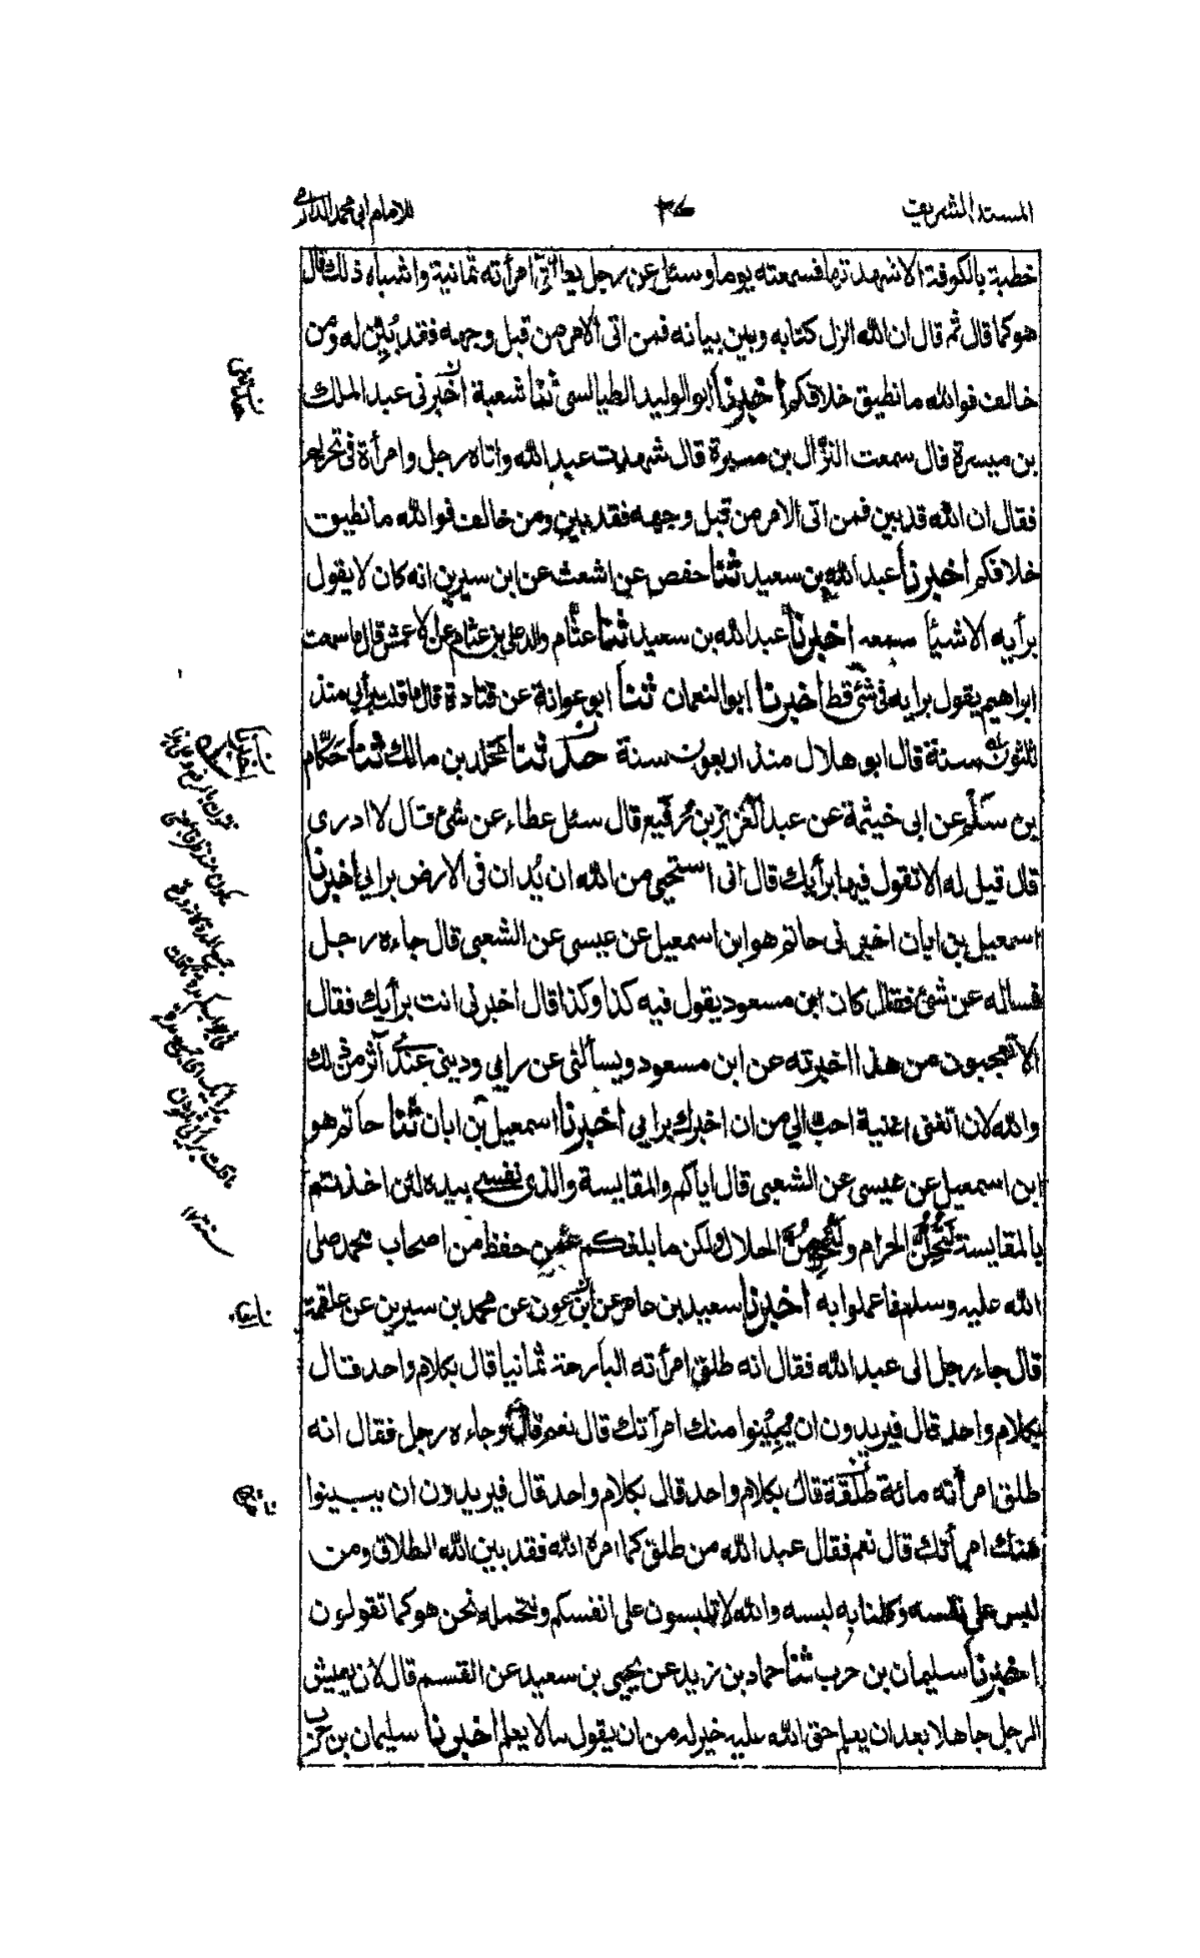 المسند الشريف ٣٧ للامام ابى محمد الدارمى
خطبة بالكوفة الا شهدتها فسمعته يوما وسئل عن رجل يطلق امرأته ثمانية واشباه ذلك قال
هو كما قال ثم قال ان الله انزل كتابه وبين بيانه فمن اتى الامر من قبل وجهه فقد بُيّن له ومن
خالف فوالله ما نطيق خلافكم اخبرنا ابو الوليد الطيالسى ثنا شعبة اخبرنى عبد الملك
بن ميسرة قال سمعت النزّال بن سبرة قال شهدت عبد الله واتاه رجل وامرأة فى تحريم
فقال ان الله قد بين فمن اتى الامر من قبل وجهه فقد بين ومن خالف فوالله ما نطيق
خلافكم اخبرنا عبد الله بن سعيد ثنا حفص عن اشعث عن ابن سيرين انه كان لا يقول
برأيه الا شيئاً سمعه اخبرنا عبد الله بن سعيد ثنا عثّام والد على بن عثام عن الاعمش قال ما سمعت
ابراهيم يقول برايه فى شئ قط اخبرنا ابو النعمان ثنا ابو عوانة عن قتادة قال ما قلت برأيى منذ
ثلثون سنة قال ابو هلال منذ اربعون سنة حدثنا مخلد بن مالك ثنا حَكّام
بن سَلْم عن ابى خيثمة عن عبد العزيز بن رفيع قال سئل عطاء عن شئ قال لا ادرى
قال قيل له الا تقول فيها برأيك قال انى استحيى من الله ان يُدان فى الارض برايى اخبرنا
اسمعيل بن ابان اخبرنى حاتم هو ابن اسمعيل عن عيسى عن الشعبى قال جاءه رجل
فساله عن شئ فقال كان ابن مسعود يقول فيه كذا وكذا قال اخبرنى انت برأيك فقال
الا تعجبون من هذا اخبرته عن ابن مسعود ويسألنى عن رايى ودينى عندى آثر من ذلك
والله لان اتغنى اغنية احبّ الي من ان اخبرك برايى اخبرنا اسمعيل بن ابان ثنا حاتم هو
ابن اسمعيل عن عيسى عن الشعبى قال اياكم والمقايسة والذى نفسى بيده لئن اخذتم
بالمقايسة لتُحِلّنّ الحرام ولتُحرّمُنّ الحلال ولكن ما بلغكم عمن حفظ من اصحاب محمد صلى
الله عليه وسلم فاعملوا به اخبرنا سعيد بن عامر عن ابن عون عن محمد بن سيرين عن علقمة
قال جاء رجل الى عبد الله فقال انه طلق امرأته البارحة ثمانيا قال بكلام واحد قال
بكلام واحد قال فيريدون ان يبينوا منك امرأتك قال نعم قال وجاءه رجل فقال انه
طلق امرأته مائة طلقة قال بكلام واحد قال بكلام واحد قال فيريدون ان يبينوا
منك امرأتك قال نعم فقال عبد الله من طلق كما امره الله فقد بين الله الطلاق ومن
لبس على نفسه وكلنا به لبسه والله لا تلبسون على انفسكم ونتحمله نحن هو كما تقولون
اخبرنا سليمان بن حرب ثنا حماد بن زيد عن يحيى بن سعيد عن القسم قال لان يعيش
الرجل جاهلا بعد ان يعلم حق الله عليه خير له من ان يقول ما لا يعلم اخبرنا سليمان بن حرب